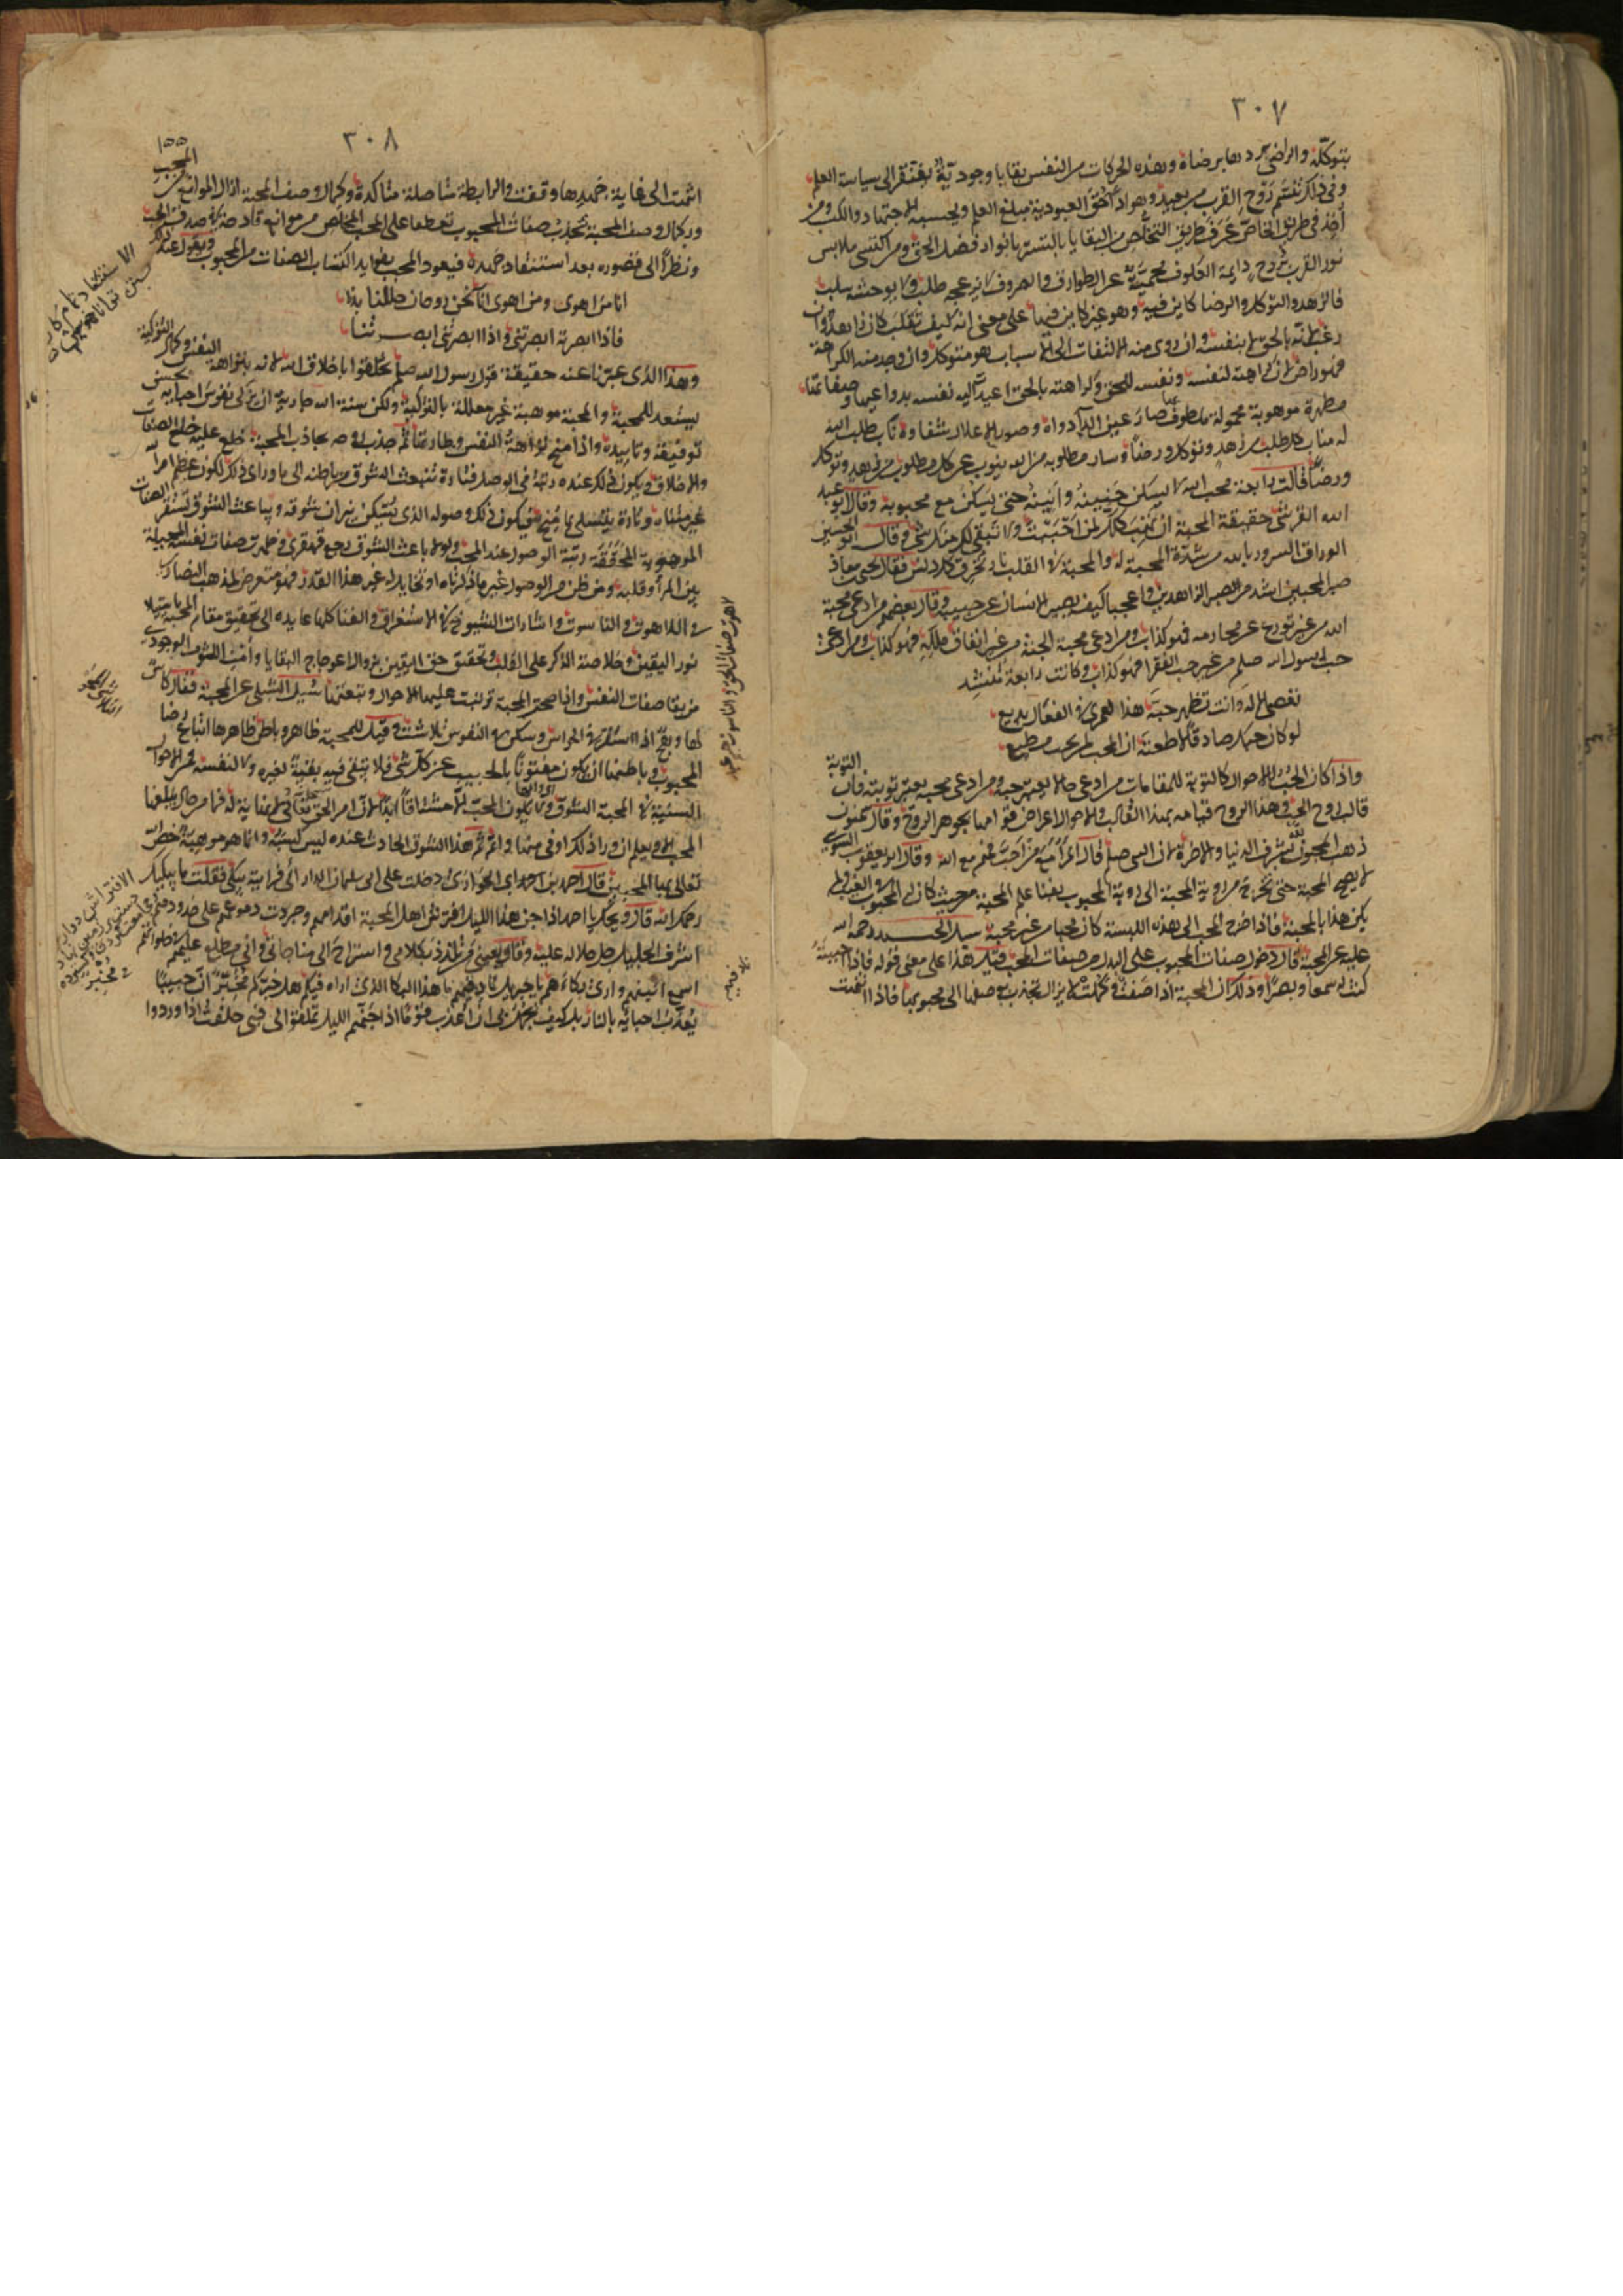 ٣٠٧
بتوكله والراضى يرد ها برضاه وهذه الحركات من النفس بقايا وجودية تفتقر الى سياسة العلم
وفى ذلك تنسم روح القرب من بعيد وهو اداء حق العبودية مبلغ العلم وبحسبه الاجتهاد والكسب ومن
اخذ فى طريق الخاص عرف طريق التخلص من البقايا بالتستر بانوار فضل الحق ومن اكتسى ملابس
نور القرب بروح دايمة العكوف محمية عن الطوارق والصروف لا يزعجه طلب ولا يوحشه سلب
فالزهد والتوكل والرضا كاين فيه وهو غير كاين فيها على معنى انه كيف تقلب كان زاهدا وان
رغب لانه بالحق لا بنفسه وان روى منه الالتفات الى الاسباب هو متوكل وان وجد منه الكراهة
فهو راض لان كراهته لنفسه ونفسه للحق وكراهته بالحق اعيد اليه نفسه بدواعيها وصفاتها
مطهرة موهوبة محمولة ملطوف بها صار عين الداء دواه وصور الاعلال شفاه وناب طلب الله
له مناب كل طلب من زهد وتوكل ورضا وسار مطلوبه من الله ينوب عن كل مطلوب من زهد وتوكل
ورضا قالت رابعة محب الله لا يسكن حنينه وانينه حتى يسكن مع محبوبه وقال ابو عبد
الله القرشى حقيقة المحبة ان تهب كلك لمن احببت ولا تبقى لك منك شى وقال ابو الحسين
الوراق السرور بالله من شدة المحبة له والمحبة فى القلب نار تحرق كل دنس وقال يحيى بن معاذ
صبر المحبين اشد من صبر الزاهدين واعجبا كيف يصبر الانسان عن حبيبه وقال بعضهم من ادعى محبة
الله من غير تورع عن محارمه فهو كذاب ومن ادعى محبة الجنة من غير انفاق ملكه فهو كذاب ومن ادعى
حب رسول الله صلعم من غير حب الفقرا فهو كذاب وكانت رابعة تنشد
تعصى الاله وانت تظهر حبه هذا لعمرى فى الفعال بديع
لو كان حبك صادقا لاطعته ان المحب لمن يحب مطيع
واذا كان الحب للاحوال كالتوبة للمقامات من ادعى حالا يعتبر حبه ومن ادعى محبة يعتبر توبته فان التوبة
قالب روح الحب وهذا الروح قيامه بهذا القالب والاحوال اعراض قوامها بجوهر الروح وقال سمنون
ذهب المحبون لله بشرف الدنيا والاخرة لان النبى صلعم قال المرء مع من احب فهم مع الله وقال ابو يعقوب السوسى
لا يصح المحبة حتى تخرج من روية المحبة الى روية المحبوب بفنا علم المحبة من حيث كان له المحبوب فى الغيب ولم
يكن هذا بالمحبة فاذا خرج المحب الى هذه النسبة كان محبا من غير محبة سئل الجنيد رحمة الله
عليه عن المحبة قال دخول صفات المحبوب على البدل من صفات المحب قيل هذا على معنى قوله فاذا احببته
كنت له سمعا وبصرا وذلك ان المحبة اذا صفت وكملت لا يزال تجذب بوصفها الى محبوبها فاذا انتهت
٣٠٨
١٥٥
انتهت الى غاية جهدها وقفت والرابطة متاصلة متاكدة وكمال وصف المحبة ازال الموانع من المحب
وبكمال وصف المحبة تجذب صفات المحبوب تعطفا على المحب المخلص من موانع قادحة فى صدق الحب
ونظرا الى قصوره بعد استنفاد جهده فيعود المحب بفوايد اكتساب الصفات من المحبوب ويقول عند ذلك
انا من اهوى ومن اهوى انا نحن روحان حللنا بدنا
فاذا ابصرته ابصرتنى واذا ابصرتنى ابصرتنا
وهذا الذى عبرنا عنه حقيقة قول رسول الله صلعم تخلقوا باخلاق الله لانه بنزاهة النفس وكمال التزكية
يستعد للمحبة والمحبة موهبة غير معللة بالتزكية ولكن سنة الله جارية ان يزكى نفوس احبابه بحسن
توفيقه وتاييده واذا منح نزاهة النفس وطهارتها ثم جذب روحه بجاذب المحبة خلع عليه خلع الصفات
والاخلاق ويكون ذلك عنده رتبة فى الوصل فتارة تنبعث الشوق من باطنه الى ما وراى ذلك لكون عظم امر الله
غير متناه وتارة يتسلى بما منح فيكون ذلك وصوله الذى يسكن نيران شوقه وبباعث الشوق تستقر الصفات
الموهوبة المحققة رتبة الوصول عند المحب ولولا باعث الشوق رجع قهقرى وظهرت صفات نفسه الحايلة
بين المرء وقلبه ومن ظن من الوصول غير ما ذكرناه او تخايل له غير هذا القدر فهو متعرض لمذهب النصارى
فى اللاهوت والناسوت واشارات الشيوخ فى الاستغراق والفنا كلها عايدة الى تحقيق مقام المحبة باستيلا
نور اليقين وخلاصة الذكر على القلب وتحقق حق اليقين بزوال اعوجاج البقايا وامن اللوث الوجودى
من بقا صفات النفس واذا صحت المحبة ترتبت عليها الاحوال وتبعتها سئل الشبلى عن المحبة فقال كاس
لها وهج اذا استقر فى الحواس وسكن فى النفوس تلاشت وقيل للمحبة ظاهر وباطن ظاهرها اتباع رضا
المحبوب وباطنها ان يكون مفتونا بالحبيب عن كل شى فلا تبقى فيه بقية لغيره ولا لنفسه فمن الاحوال
السنية فى المحبة الشوق ولا يكون المحب الا مشتاقا ابدا لان امر الحق تعالى لا نهاية له فما من حال يبلغها
المحب الا ويعلم ان وراء ذلك اوفى منها واتم ثم هذا الشوق الحادث عنده ليس كسبه وانما هو موهبة خص الله
تعالى بها المحبين قال احمد بن ابى الحوارى دخلت على ابى سليمان الدارانى فرايته يبكى فقلت ما يبكيك
رحمك الله قال ويحك يا احمد اذا جن هذا الليل افترش اهل المحبة اقدامهم وجرت دموعهم على خدودهم
اشرف الجليل جل جلاله عليهم وقال بعينى من تلذذ بكلامى واستراح الى مناجاتى وانى مطلع عليهم فى خلواتهم
اسمع انينهم وارى بكاءهم يا جبريل ناد فيهم ما هذا البكا الذى اراه فيكم هل خبركم مخبر ان حبيبا
يعذب احبائه بالنار بل كيف يجمل بى ان اعذب قوما اذا جنهم الليل تملقوا الى فبى حلفت اذا وردوا